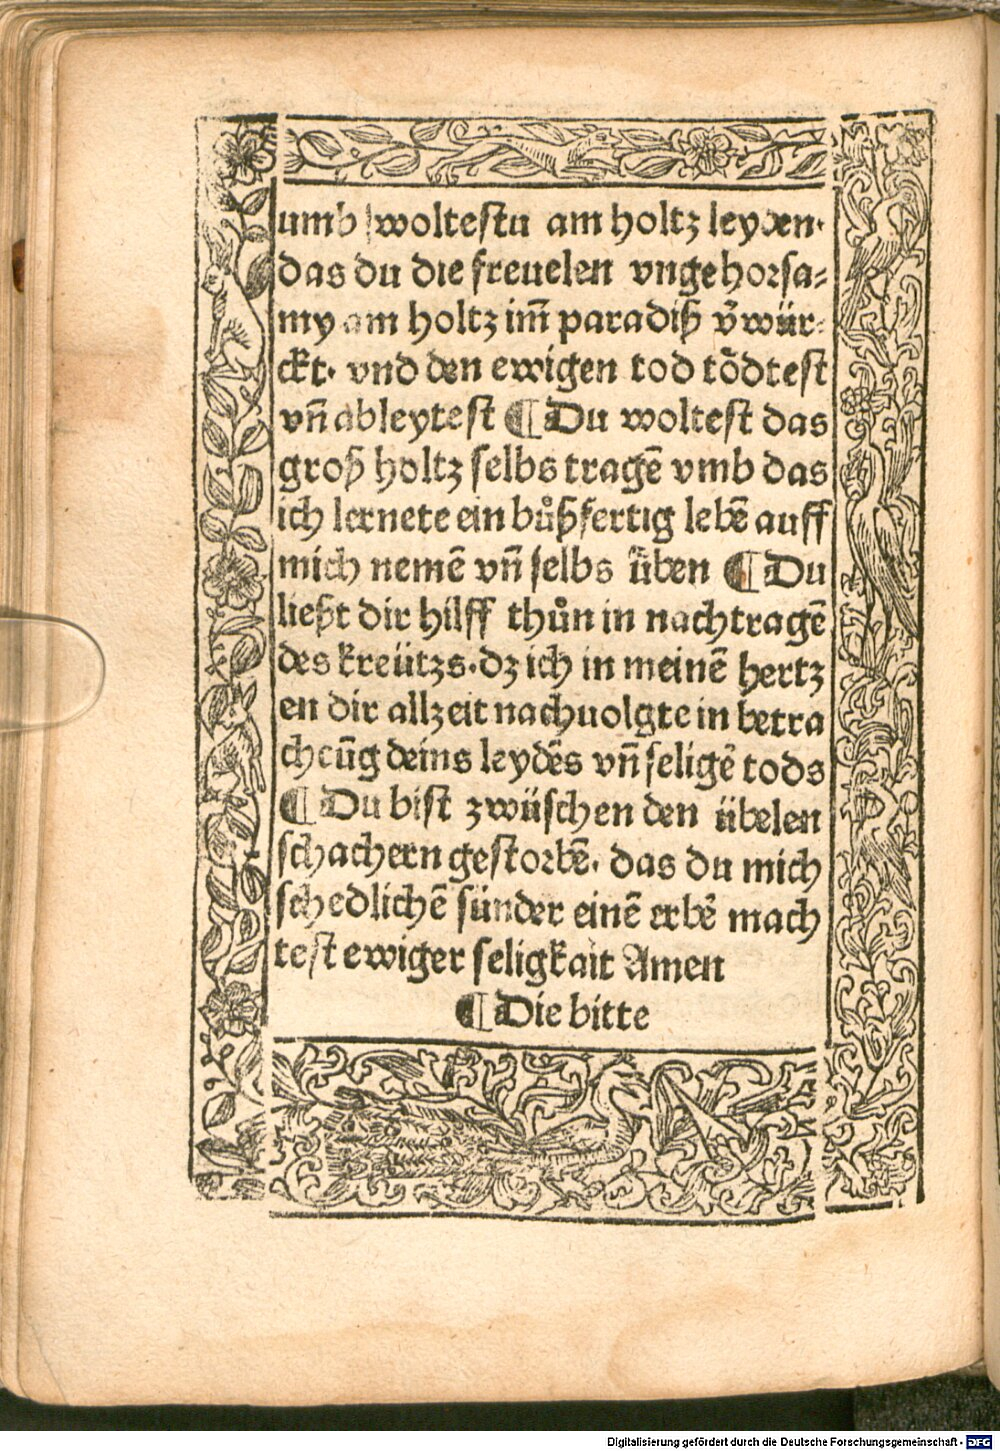 umb woltestu am holtz leyden·
das du die freuelen vngehorsa⸗
my am holtz im̄ paradiß v̄wür⸗
ckt· vnd den ewigen tod tödtest
vn̄ ableytest ¶ Du woltest das
groß holtz selbs tragē vmb das
ich lernete ein bůßfertig lebē auff
mich nemē vn̄ selbs üben ¶ Du
ließt dir hilff thůn in nachtragē
des kreützs·dz ich in meinē hertz
en dir allzeit nachuolgte in betra
chtūg deins leydēs vn̄ seligē tods
¶ Du bist zwüschen den übelen
schachern gestorbē· das du mich
schedlichē sünder einē erbē mach
test ewiger seligkait Amen
¶ Die bitte
Digitalisierung gefördert durch die Deutsche Forschungsgemeinschaft - DFG